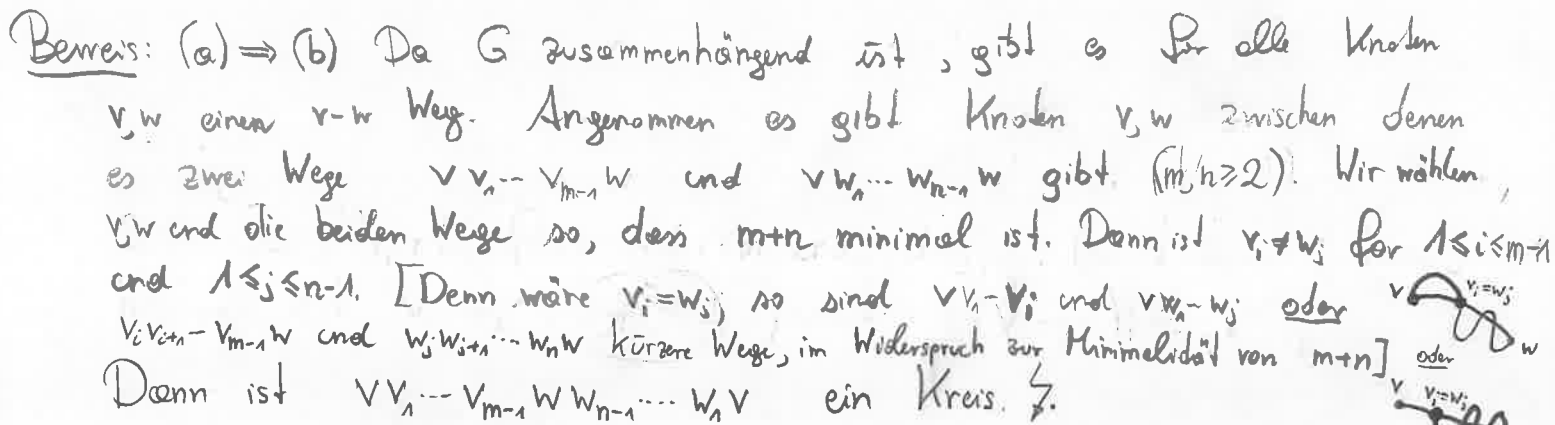 Beweis: (a) ⇒ (b) Da G zusammenhängend ist, gibt es für alle Knoten
v,w einen v-w Weg. Angenommen es gibt Knoten v,w zwischen denen
es zwei Wege v v₁ ... vₘ₋₁ w und v w₁ ... wₙ₋₁ w gibt (m,n ≥ 2). Wir wählen
v,w und die beiden Wege so, dass m+n minimal ist. Dann ist vᵢ ≠ wⱼ für 1 ≤ i ≤ m-1
und 1 ≤ j ≤ n-1. [Denn wäre vᵢ = wⱼ, so sind v v₁ - vᵢ und v w₁ - wⱼ oder
v vᵢ=wⱼ w
vᵢ vᵢ₊₁ - vₘ₋₁ w und wⱼ wⱼ₊₁ ... wₙ w kürzere Wege, im Widerspruch zur Minimalidät von m+n] oder
Dann ist v v₁ ... vₘ₋₁ w wₙ₋₁ .... w₁ v ein Kreis. ↯.
v vᵢ=wⱼ